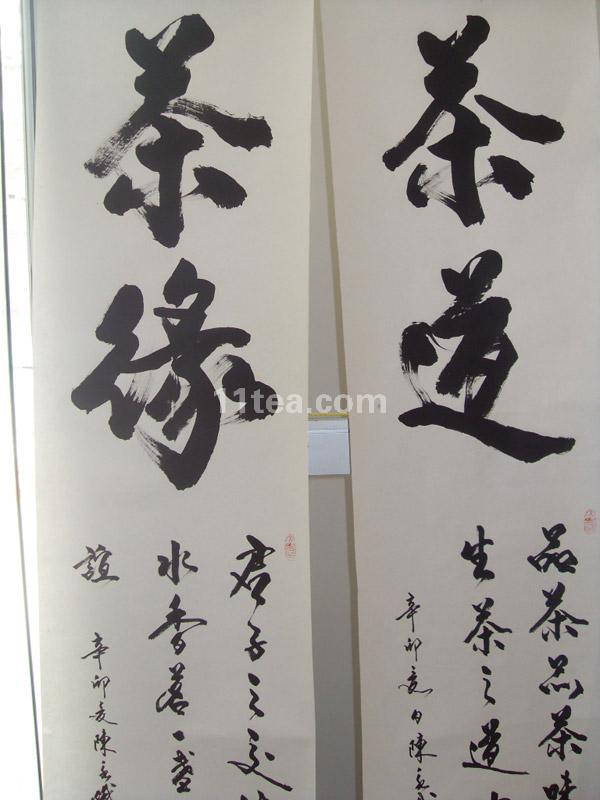 茶道
品茶品茶味
生茶之道
辛卯夏日陳
茶缘
君子之交
水香茗一盏
誼
辛卯夏陳
11tea.com